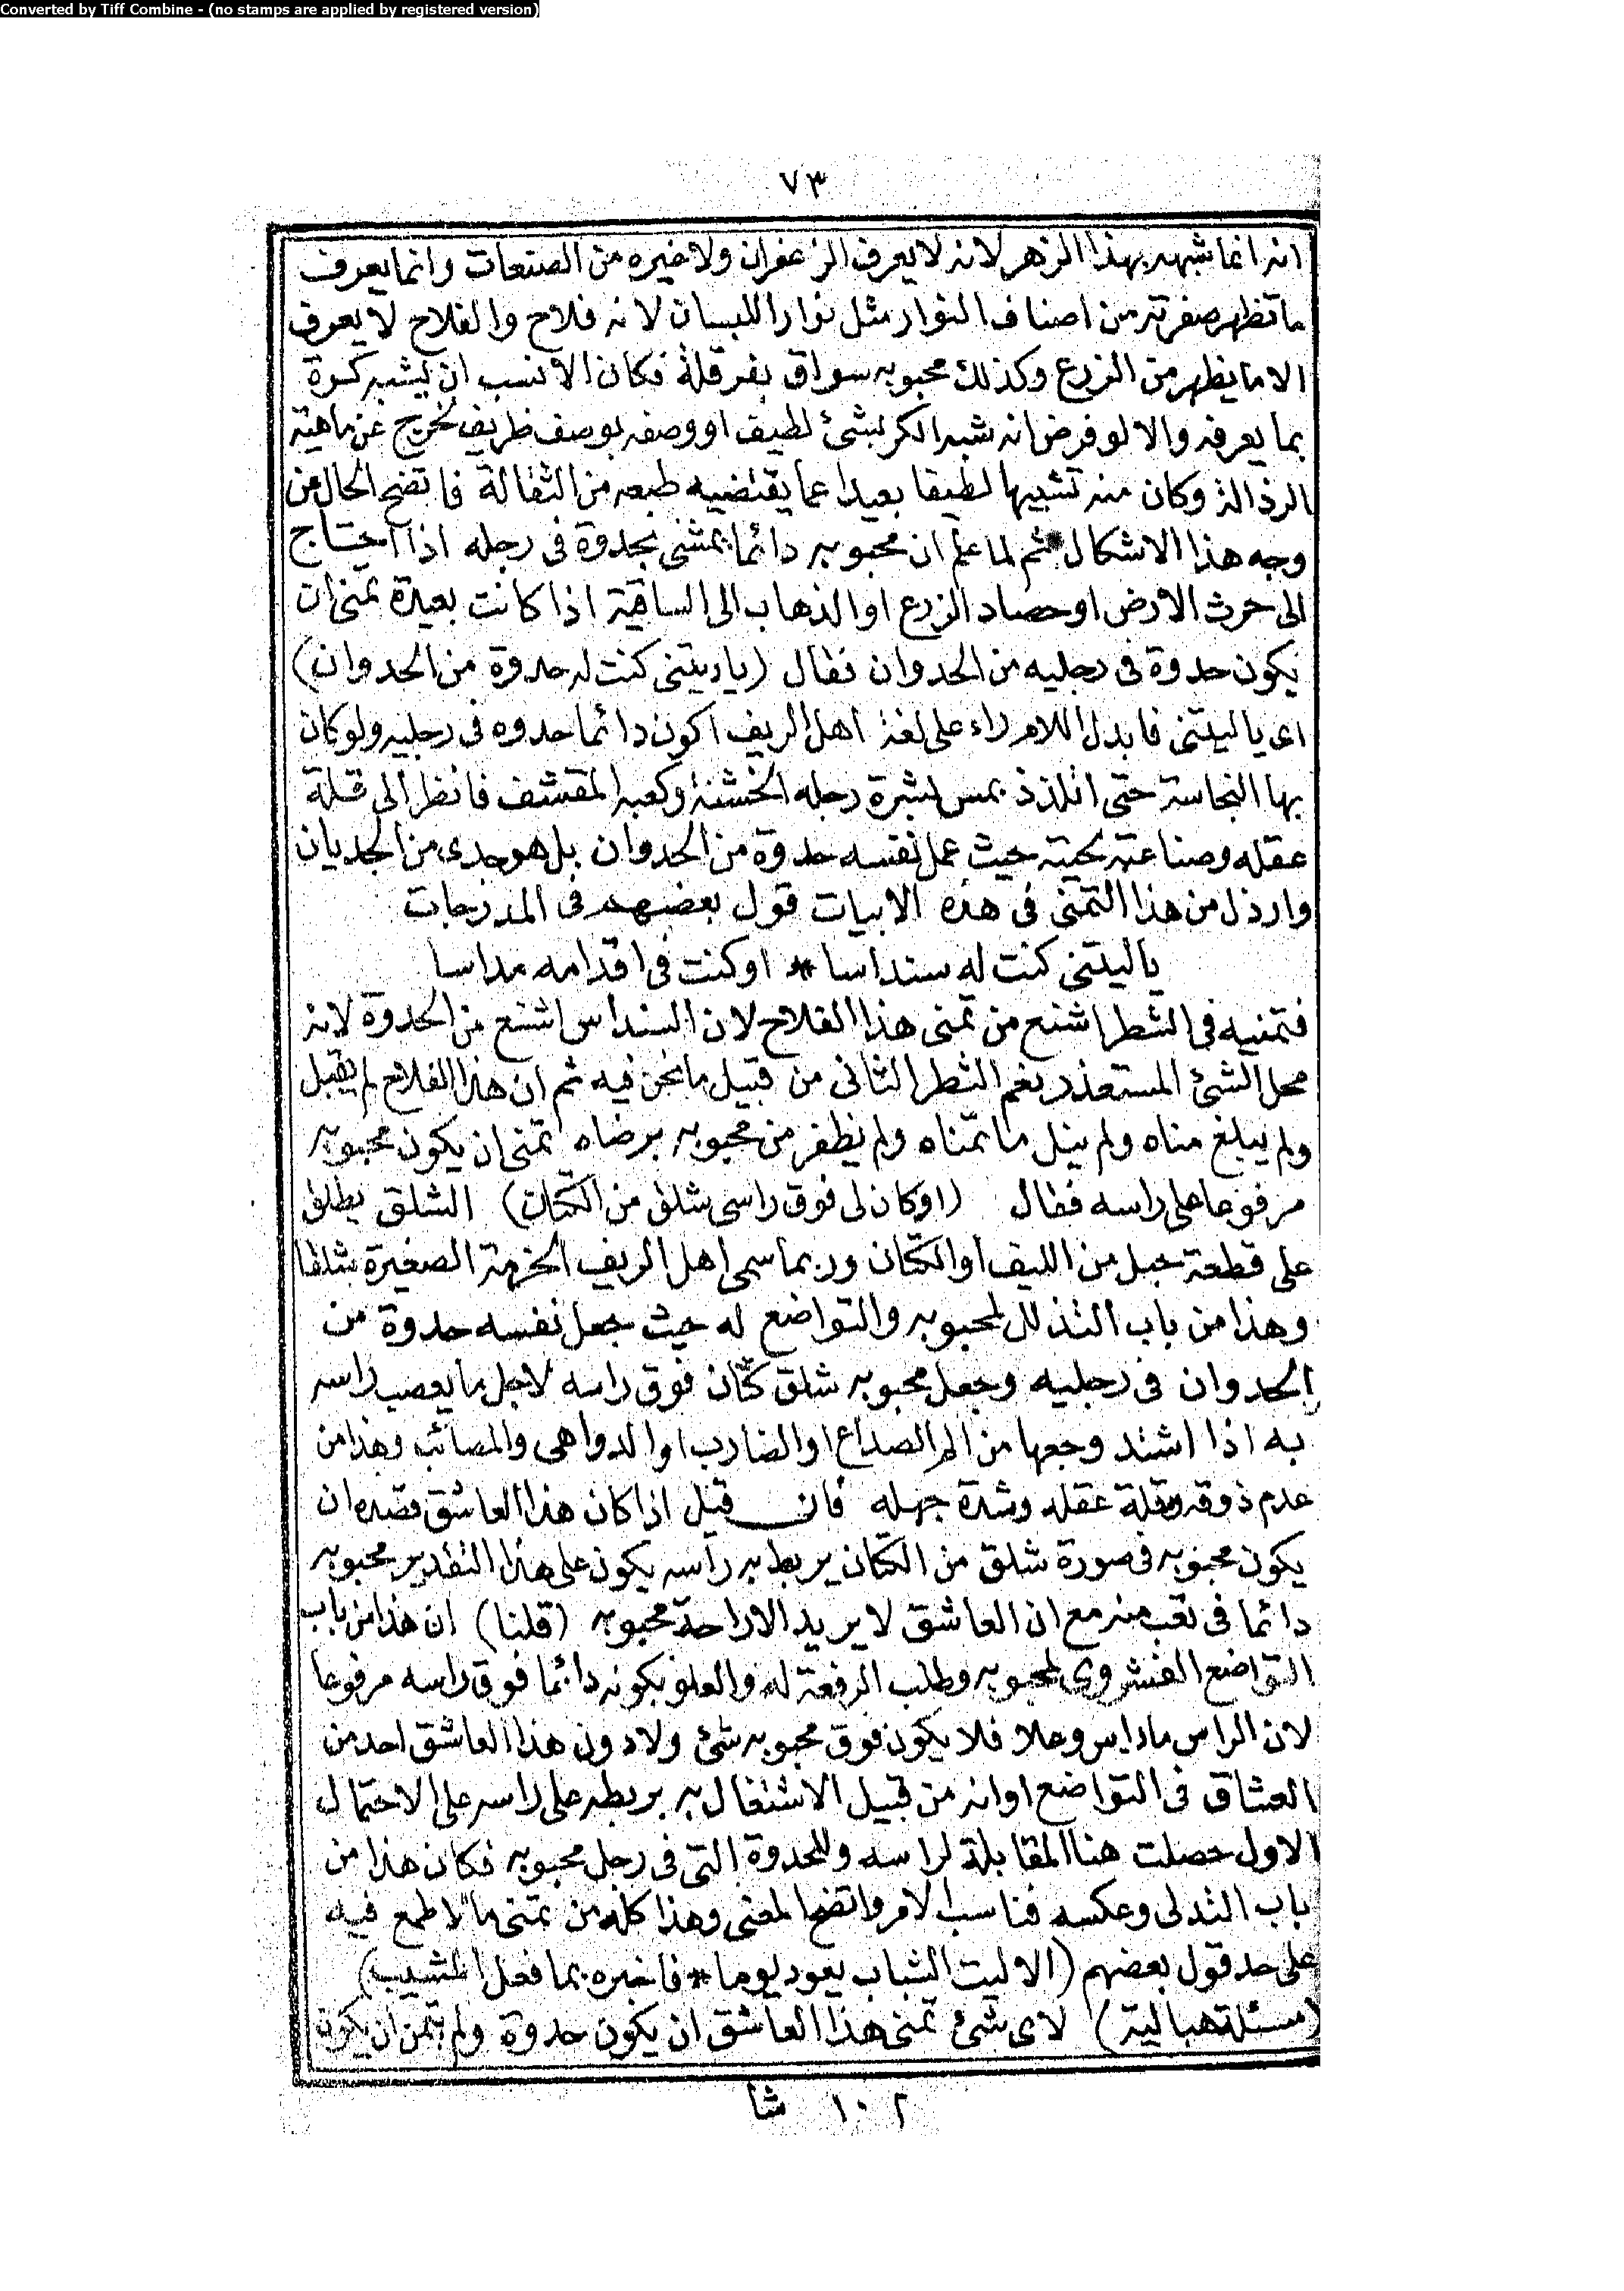 Converted by Tiff Combine - (no stamps are applied by registered version)
٧٣
انه انما شبهه بهذا الزهر لانه لا يعرف الزعفران ولا غيره من الصنعات وانما يعرف
ما تظهر صفرته من اصناف النوار مثل نوار اللبسان لانه فلاح والفلاح لا يعرف
الا ما يظهر من الزرع وكذلك محبوبه سواق بفرقلة فكان الانسب ان يشبه كرة
بما يعرفه والا لو فرض انه شبه الكر بشئ لطيف او وصفه بوصف ظريف لخرج عن ماهية
الرذالة وكان منه تشبيها لطيفا بعيدا عما يقتضيه طبعه من الثقالة فاتضح الحال عن
وجه هذا الاشكال ثم لما علم ان محبوبه دائما يمشى بحدوة فى رجله اذا احتاج
الى حرث الارض او حصاد الزرع او الذهاب الى الساقية اذا كانت بعيدة تمنى ان
يكون حدوة فى رجليه من الحدوان فقال (ياريتنى كنت له حدوة من الحدوان)
اى ياليتنى فابدل اللام راء على لغة اهل الريف اكون دائما حدوه فى رجليه ولو كان
بها النجاسة حتى اتلذذ بمس بشرة رجله الخشنة وكعبه المقشف فانظر الى قلة
عقله وصناعة لحيته حيث عمل نفسه حدوة من الحدوان بل هو جدى من الجديان
وارذل من هذا التمنى فى هذه الابيات قول بعضهم فى المزرجات
ياليتنى كنت له سنداسا * او كنت فى اقدامه مداسا
فتمنيه فى الشطر اشنع من تمنى هذا الفلاح لان السنداس اشنع من الحدوة لانه
محل الشئ المستعذر نعم الشطر الثانى من قبيل ما نحن فيه ثم ان هذا الفلاح لم يقبل
ولم يبلغ مناه ولم ينل ما تمناه ولم يظفر من محبوبه برضاه تمنى ان يكون محبوبه
مرفوعا على راسه فقال (او كان لى فوق راسى شلق من الكتان) الشلق يطلق
على قطعة حبل من الليف او الكتان وربما سمى اهل الريف الحزمة الصغيرة شلقا
وهذا من باب التذلل لمحبوبه والتواضع له حيث جعل نفسه حدوة من
الحدوان فى رجليه وجعل محبوبه شلق كتان فوق راسه لاجل ما يعصب راسه
به اذا اشتد وجعها من الم الصداع او الضارب او الدواهى والمصائب وهذا من
عدم ذوقه وقلة عقله وشدة جهله فان قيل اذا كان هذا العاشق قصده ان
يكون محبوبه فى صورة شلق من الكتان يربط به راسه يكون على هذا التقدير محبوبه
دائما فى تعب منه مع ان العاشق لا يريد الا راحة محبوبه (قلنا) ان هذا من باب
التواضع الفشروى لمحبوبه وطلب الرفعة له والعلو بكونه دائما فوق راسه مرفوعا
لان الراس ما راس وعلا فلا يكون فوق محبوبه شئ ولا دون هذا العاشق احد من
العشاق فى التواضع او انه من قبيل الاشتغال به بربطه على راسه على الاحتمال
الاول حصلت هنا المقابلة لراسه وللحدوة التى فى رجل محبوبه فكان هذا من
باب التدلى وعكسه فناسب الامر واتضح المعنى وهذا كله من تمنى ما لا طمع فيه
على حد قول بعضهم (الا ليت الشباب يعود يوما * فاخبره بما فعل المشيب)
(مسئلة هبالية) لاى شئ تمنى هذا العاشق ان يكون حدوة ولم يتمن ان يكون
٢ ١٠ شا